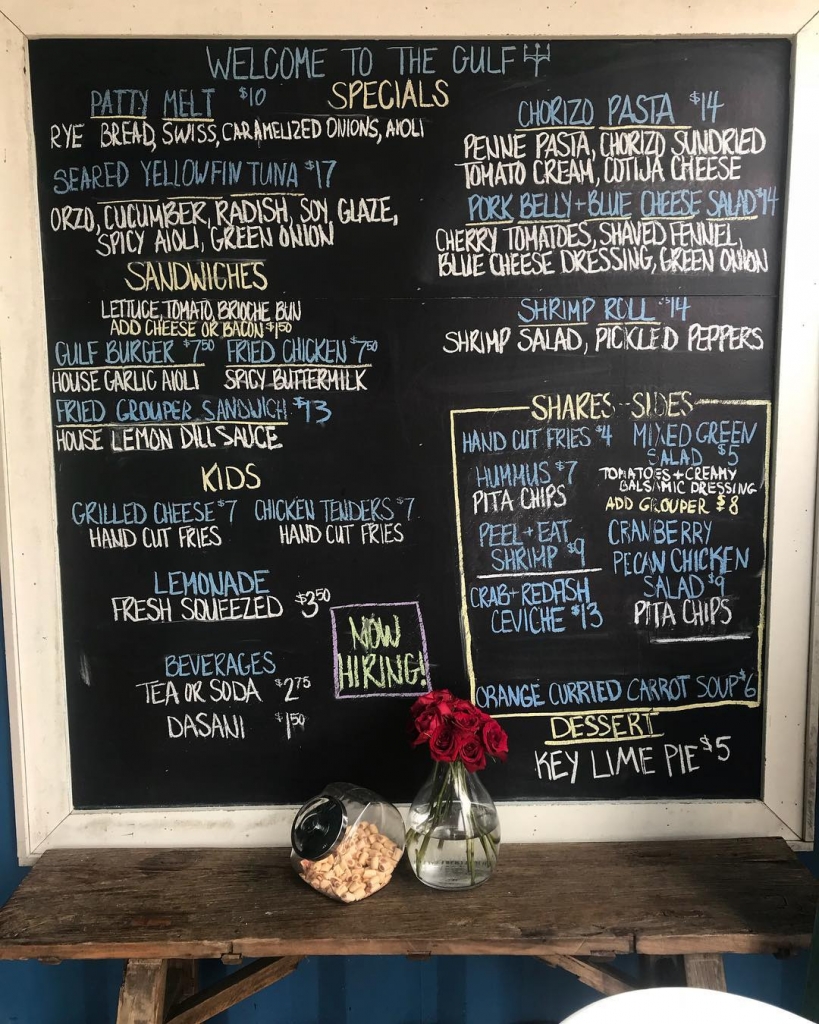 WELCOME TO THE GULF
SPECIALS
PATTY MELT $10
RYE BREAD, SWISS, CARAMELIZED ONIONS, AIOLI
SEARED YELLOWFIN TUNA $17
ORZO, CUCUMBER, RADISH, SOY GLAZE,
SPICY AIOLI, GREEN ONION
CHORIZO PASTA $14
PENNE PASTA, CHORIZO SUNDRIED
TOMATO CREAM, COTIJA CHEESE
PORK BELLY + BLUE CHEESE SALAD $14
CHERRY TOMATOES, SHAVED FENNEL,
BLUE CHEESE DRESSING, GREEN ONION
SHRIMP ROLL $14
SHRIMP SALAD, PICKLED PEPPERS
SANDWICHES
LETTUCE, TOMATO, BRIOCHE BUN
ADD CHEESE OR BACON $1.50
GULF BURGER $7.50 FRIED CHICKEN $7.50
HOUSE GARLIC AIOLI SPICY BUTTERMILK
FRIED GROUPER SANDWICH $13
HOUSE LEMON DILL SAUCE
KIDS
GRILLED CHEESE $7 CHICKEN TENDERS $7
HAND CUT FRIES HAND CUT FRIES
LEMONADE
FRESH SQUEEZED $3.50
BEVERAGES
TEA OR SODA $2.75
DASANI $1.50
NOW
HIRING!
SHARES - SIDES
HAND CUT FRIES $4
HUMMUS $7
PITA CHIPS
PEEL + EAT
SHRIMP $9
CRAB + REDFISH
CEVICHE $13
MIXED GREEN
SALAD $5
TOMATOES + CREAMY
BALSAMIC DRESSING
ADD GROUPER $8
CRANBERRY
PECAN CHICKEN
SALAD $9
PITA CHIPS
ORANGE CURRIED CARROT SOUP $6
DESSERT
KEY LIME PIE $5